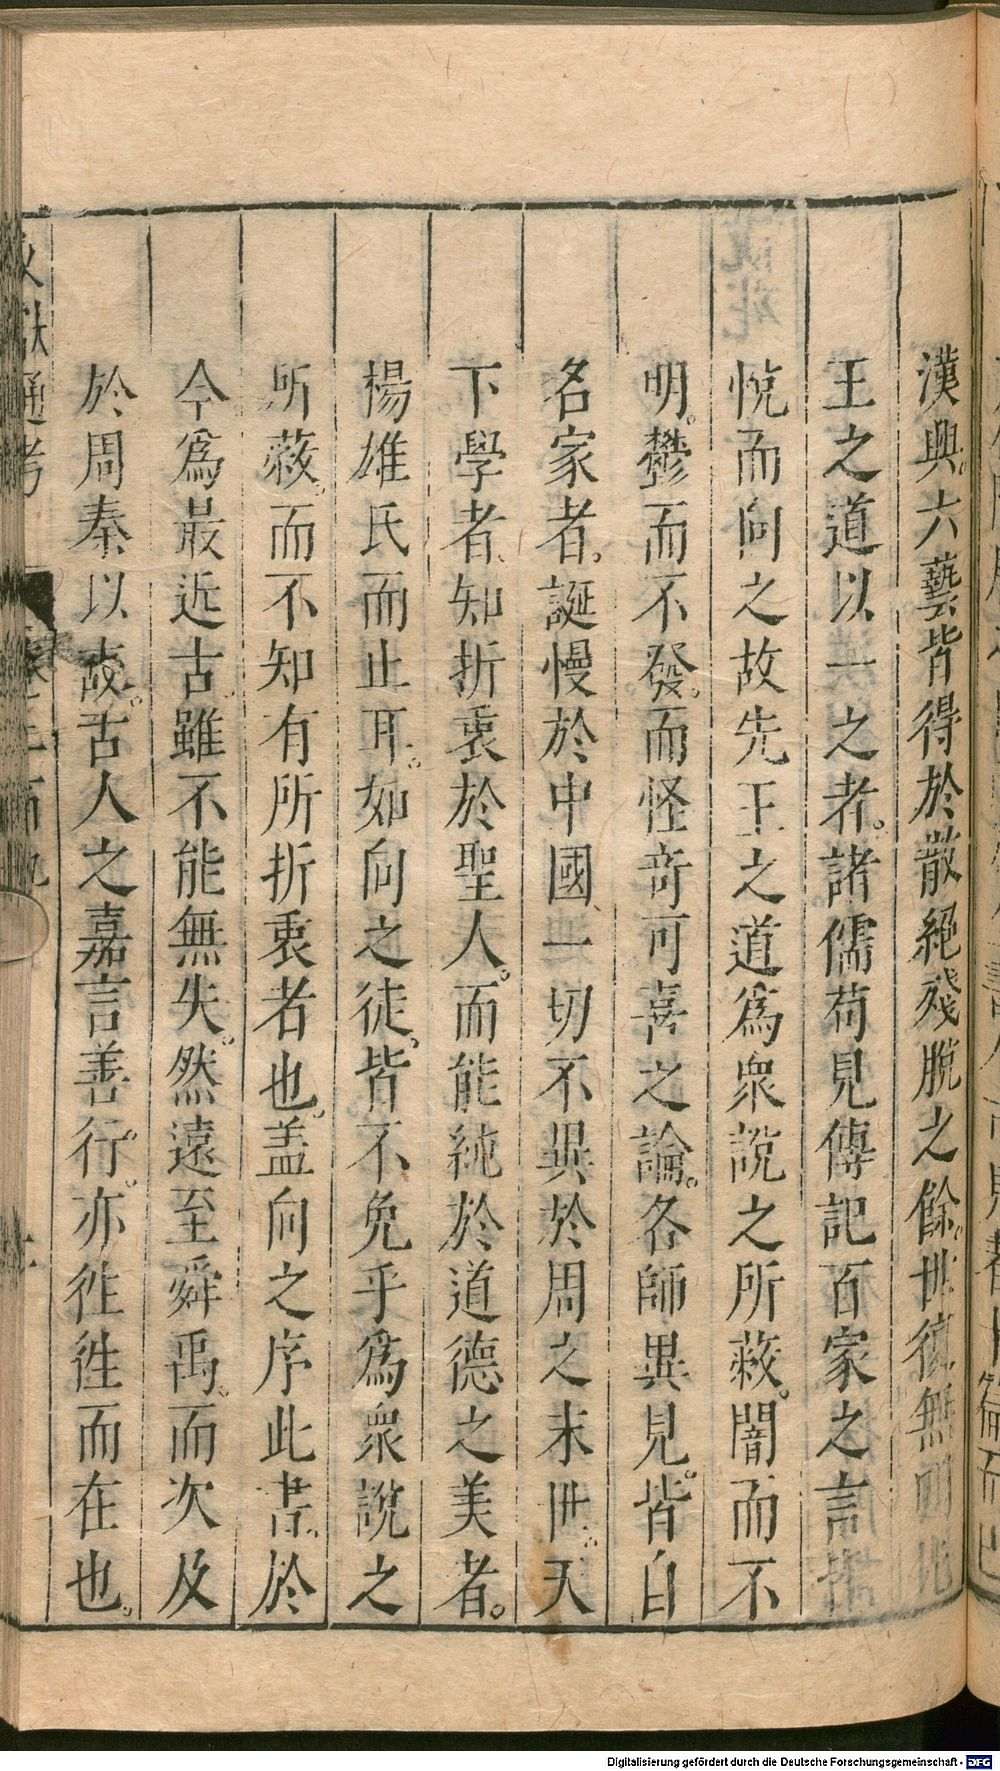 漢興六藝皆得於散絕殘脫之餘世復無明
王之道以一之者諸儒苟見傳記百家之言皆
悅而向之故先王之道為衆說之所蔽闇而不
明鬱而不發而怪奇可喜之論各師異見皆自
名家者誕慢於中國一切不異於周之末世天
下學者知折衷於聖人而能純於道德之美者
楊雄氏而止耳如向之徒皆不免乎為衆說之
所蔽而不知有所折衷者也盖向之序此書於
今為最近古雖不能無失然遠至舜禹而次及
於周秦以故古人之嘉言善行亦徃徃而在也
文獻通考
Digitalisierung gefördert durch die Deutsche Forschungsgemeinschaft - DFG